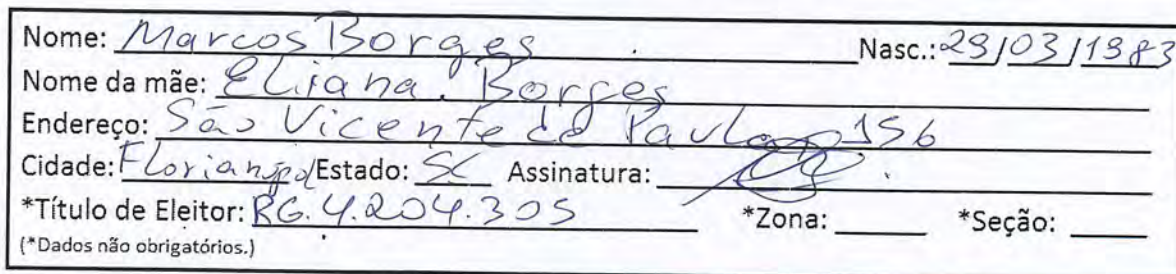 Nome: Marcos Borges Nasc.: 29/03/1983
Nome da mãe: Eliana Borges
Endereço: São Vicente de Paulo 156
Cidade: Estado: SC Assinatura:
*Título de Eleitor: RG. 4.204.305 *Zona: *Seção:
(*Dados não obrigatórios.)